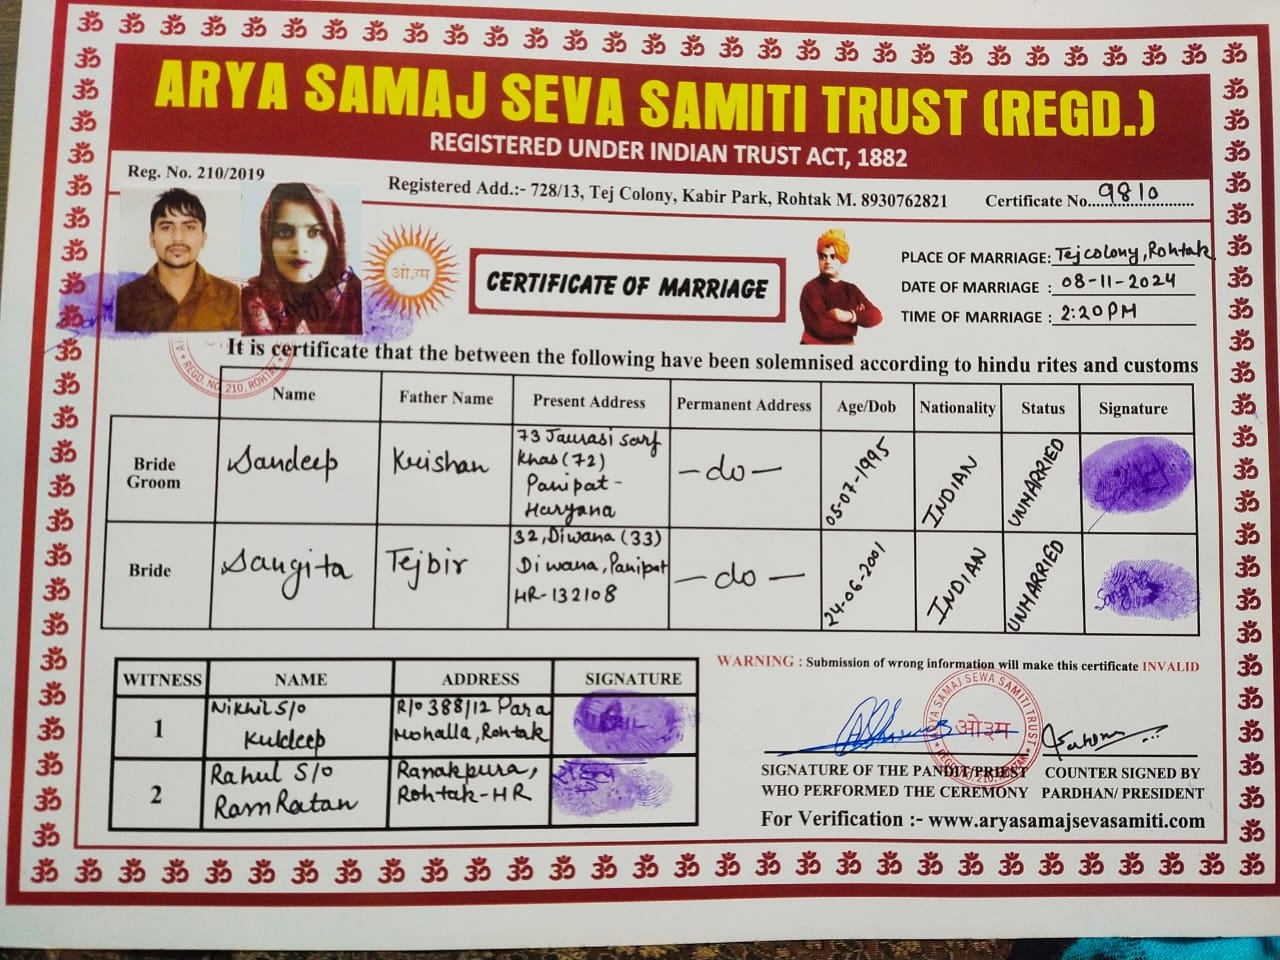 ARYA SAMAJ SEVA SAMITI TRUST (REGD.)
REGISTERED UNDER INDIAN TRUST ACT, 1882
Reg. No. 210/2019
Registered Add.:- 728/13, Tej Colony, Kabir Park, Rohtak M. 8930762821
Certificate No. 9810
ओ३म्
CERTIFICATE OF MARRIAGE
PLACE OF MARRIAGE: Tejcolony, Rohtak
DATE OF MARRIAGE : 08-11-2024
TIME OF MARRIAGE : 2:20PM
REGD. NO. 210, ROHTAK
It is certificate that the between the following have been solemnised according to hindu rites and customs
Name Father Name Present Address Permanent Address Age/Dob Nationality Status Signature
Bride Groom
Sandeep
Krishan
73 Jaurasi Sarf
Khas (72)
Panipat-
Haryana
-do-
05-07-1995
INDIAN
UNMARRIED
Bride
Sangita
Tejbir
32, Diwana (33)
Diwana, Panipat
HR-132108
-do-
24-06-2001
INDIAN
UNMARRIED
Sangita
WITNESS NAME ADDRESS SIGNATURE
1
Nikhil S/o
Kuldeep
R/o 388/12 Para
Mohalla, Rohtak
2
Rahul S/o
Ram Ratan
Ranakpura,
Rohtak-HR
WARNING : Submission of wrong information will make this certificate INVALID
ARYA SAMAJ SEWA SAMITI TRUST
ओ३म्
REGD. NO. 210, ROHTAK
SIGNATURE OF THE PANDIT/PRIEST
WHO PERFORMED THE CEREMONY
COUNTER SIGNED BY
PARDHAN/ PRESIDENT
For Verification :- www.aryasamajsevasamiti.com